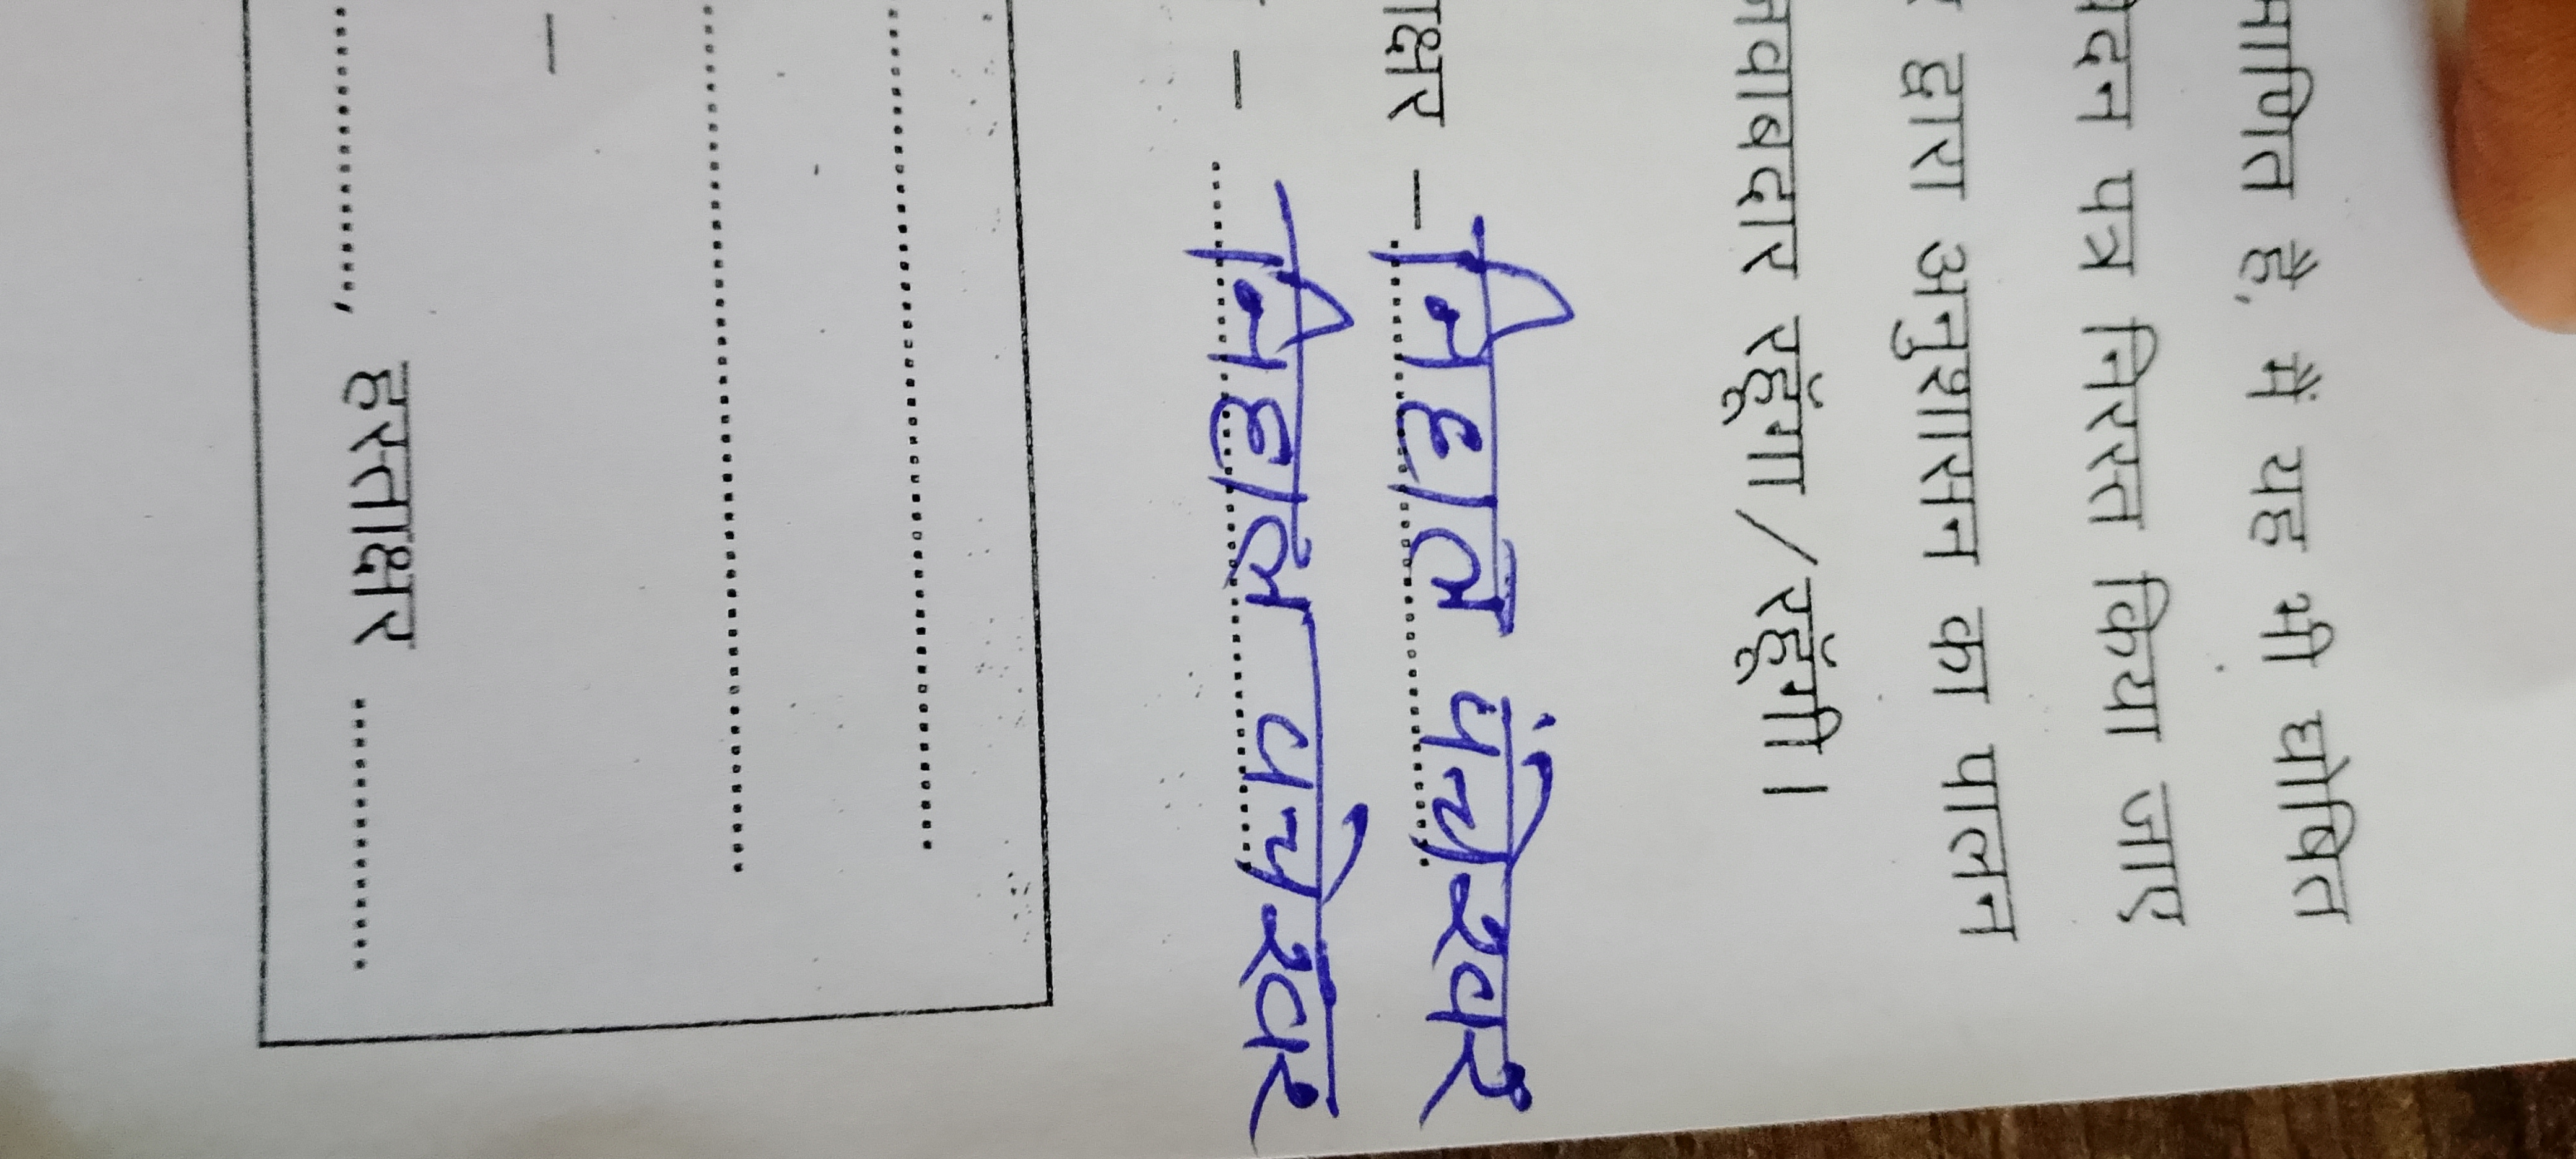 माणित है, मैं यह भी घोषित
वेदन पत्र निरस्त किया जाए
द्वारा अनुशासन का पालन
जवाबदार रहूंगा / रहूंगी।
ाक्षर – निहाल पंचेश्वर
– निहाल पचेश्वर
–
हस्ताक्षर